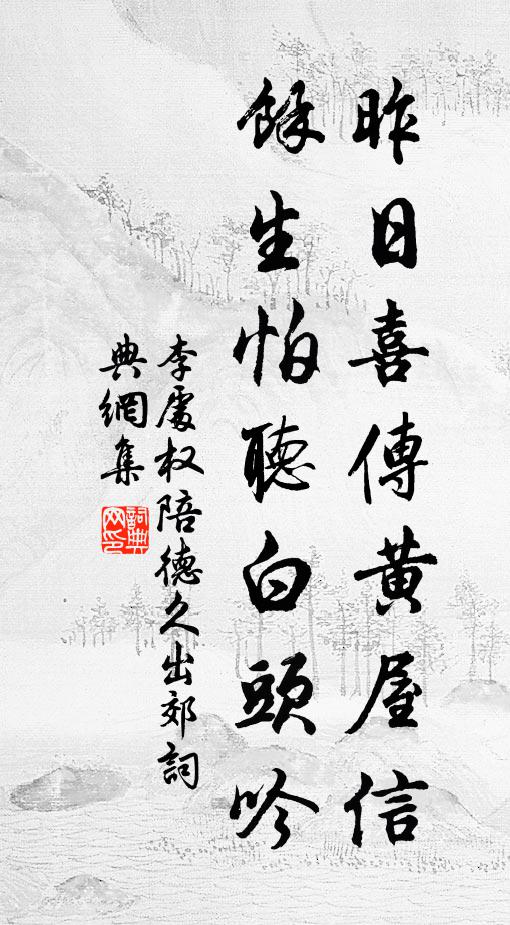 昨日喜傳黄屋信
餘生怕聽白頭吟
李處权陪德久出郊詞
典網集
詞典网印